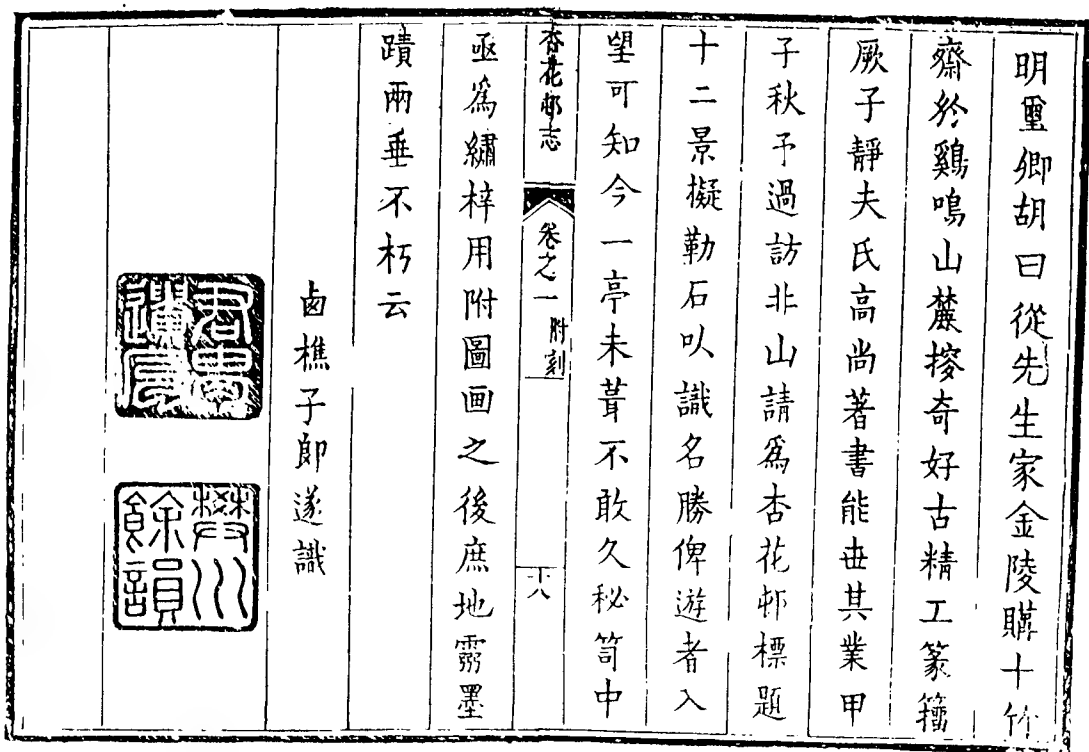 明璽卿胡曰從先生家金陵購十竹
齋於鷄鳴山麓搜奇好古精工篆籀
厥子靜夫氏高尚著書能世其業甲
子秋予過訪非山請爲杏花邨標題
十二景擬勒石以識名勝俾遊者入
望可知今一亭未葺不敢久秘笥中
杏花邨志
卷之一
附刻
十八
亟爲繡梓用附圖画之後庶地靈墨
蹟兩垂不朽云
鹵樵子郎遂識
樊川
餘韻